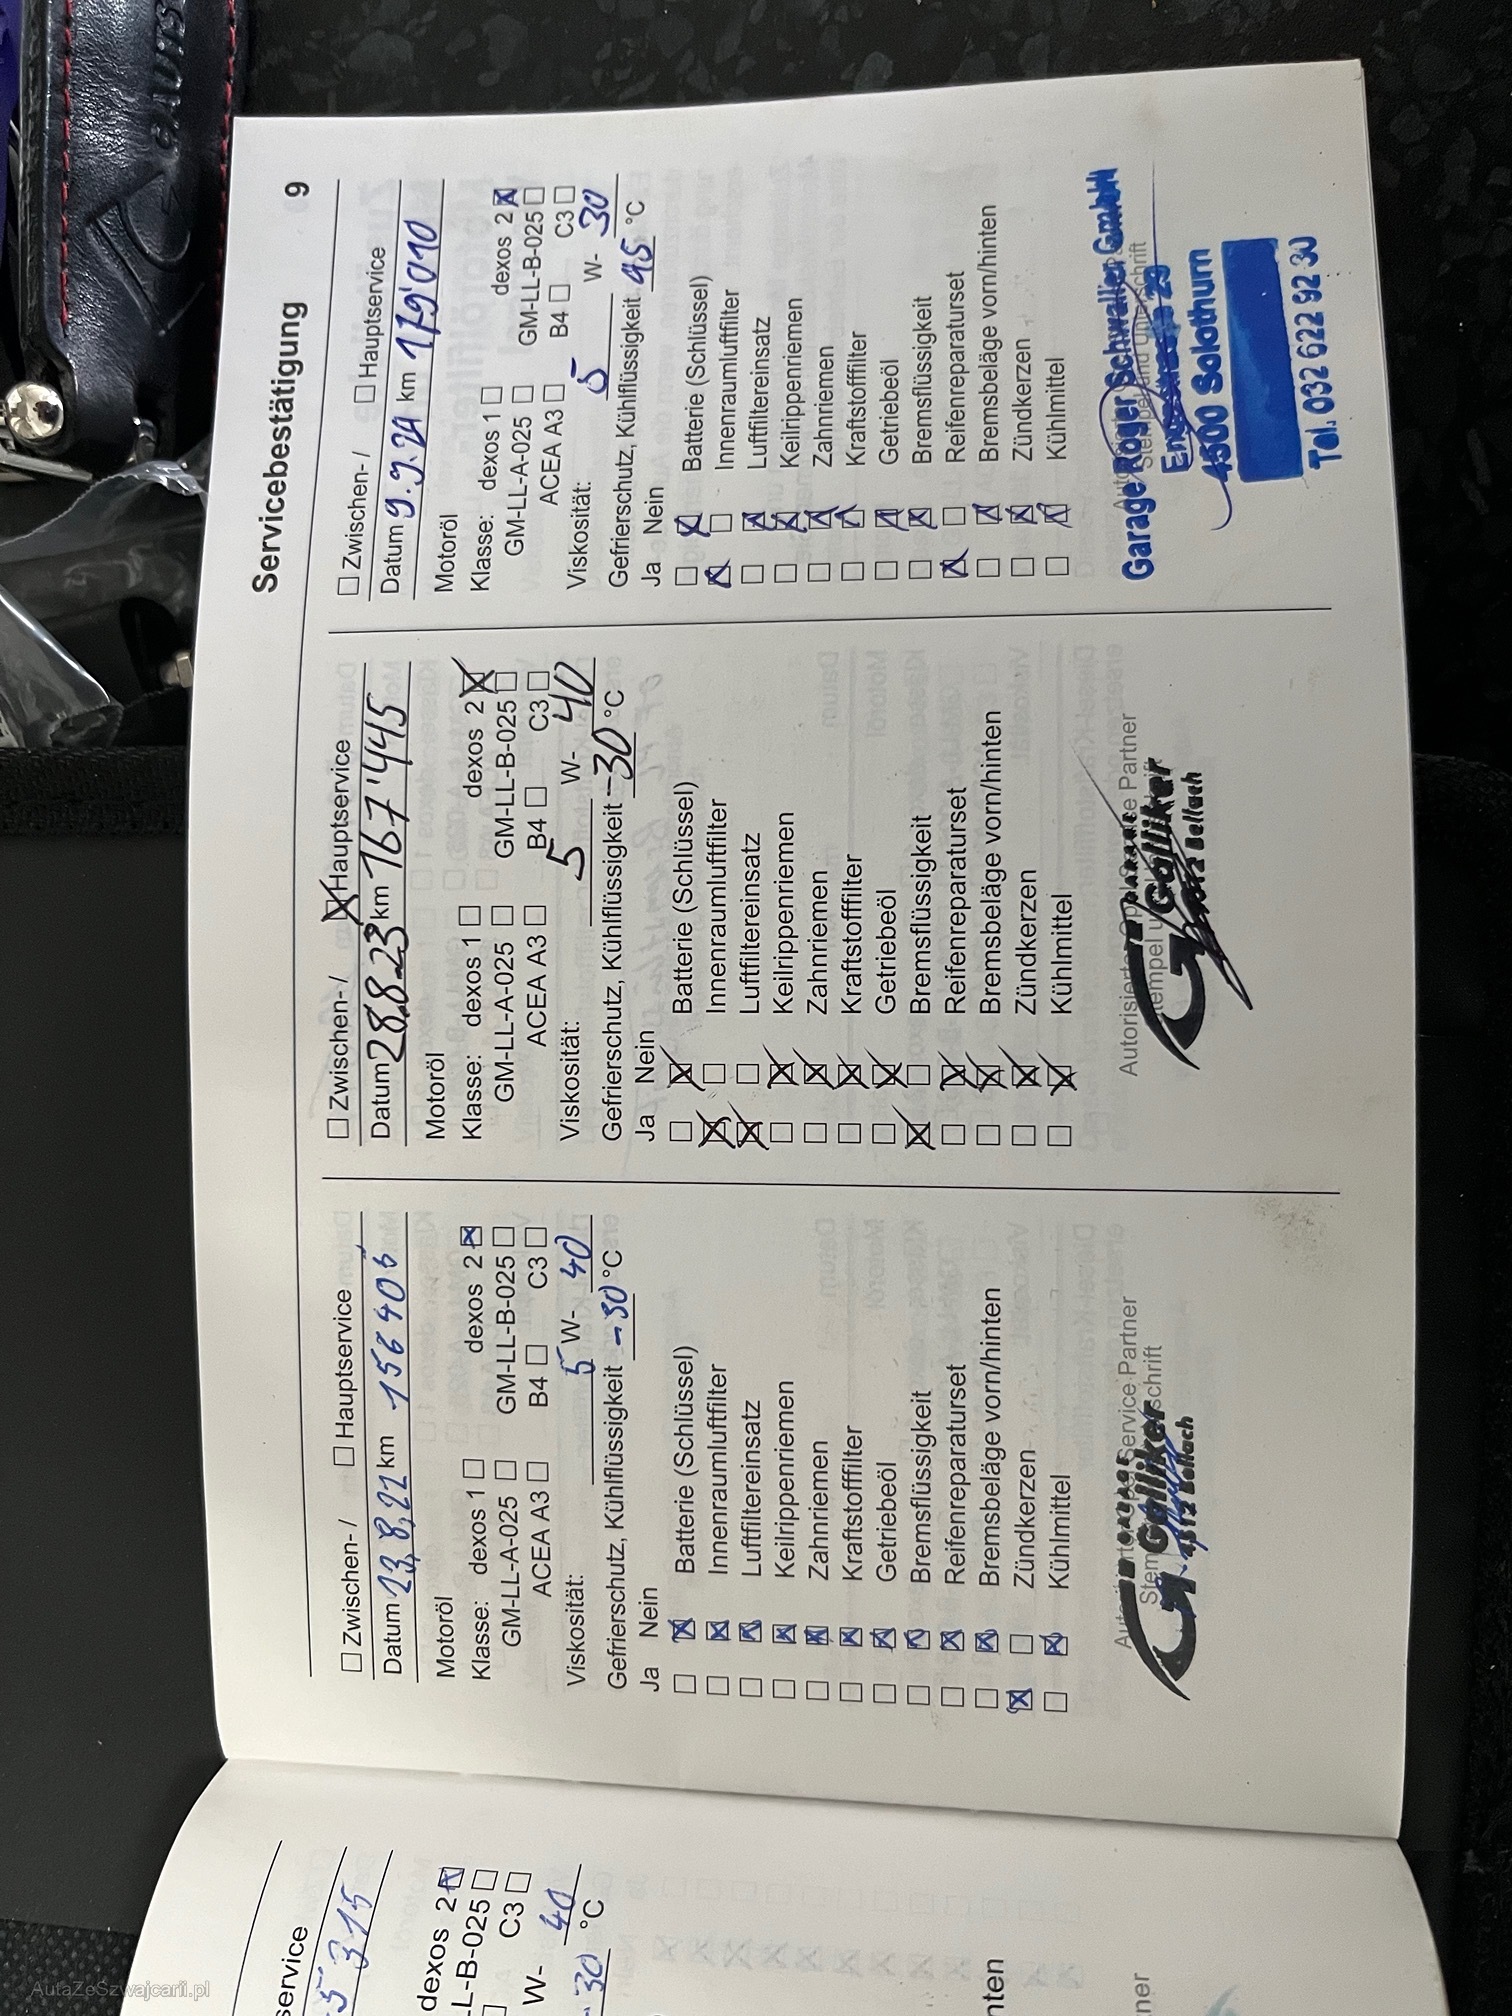 Servicebestätigung 9
Zwischen- / Hauptservice
Datum 23,8,22 km 156406
Motoröl
Klasse: dexos 1 dexos 2
GM-LL-A-025 GM-LL-B-025
ACEA A3 B4 C3
Viskosität: 5 W- 40
Gefrierschutz, Kühlflüssigkeit -30 °C
Ja Nein
Batterie (Schlüssel)
Innenraumluftfilter
Luftfiltereinsatz
Keilrippenriemen
Zahnriemen
Kraftstofffilter
Getriebeöl
Bremsflüssigkeit
Reifenreparaturset
Bremsbeläge vorn/hinten
Zündkerzen
Kühlmittel
Service Partner
Galliker
4512 Bellach
Zwischen- / Hauptservice
Datum 28.8.23 km 167'445
Motoröl
Klasse: dexos 1 dexos 2
GM-LL-A-025 GM-LL-B-025
ACEA A3 B4 C3
Viskosität: 5 W- 40
Gefrierschutz, Kühlflüssigkeit -30 °C
Ja Nein
Batterie (Schlüssel)
Innenraumluftfilter
Luftfiltereinsatz
Keilrippenriemen
Zahnriemen
Kraftstofffilter
Getriebeöl
Bremsflüssigkeit
Reifenreparaturset
Bremsbeläge vorn/hinten
Zündkerzen
Kühlmittel
Partner
Galliker
Bellach
Zwischen- / Hauptservice
Datum 9.9.24 km 179'010
Motoröl
Klasse: dexos 1 dexos 2
GM-LL-A-025 GM-LL-B-025
ACEA A3 B4 C3
Viskosität: 5 W- 30
Gefrierschutz, Kühlflüssigkeit 45 °C
Ja Nein
Batterie (Schlüssel)
Innenraumluftfilter
Luftfiltereinsatz
Keilrippenriemen
Zahnriemen
Kraftstofffilter
Getriebeöl
Bremsflüssigkeit
Reifenreparaturset
Bremsbeläge vorn/hinten
Zündkerzen
Kühlmittel
Garage Roger Schwaller GmbH
4500 Solothurn
Tel. 032 622 92 30
service
5 315
dexos 2
L-B-025
C3
W- 40
-30 °C
nten
ner
AutaZeSzwajcarii.pl